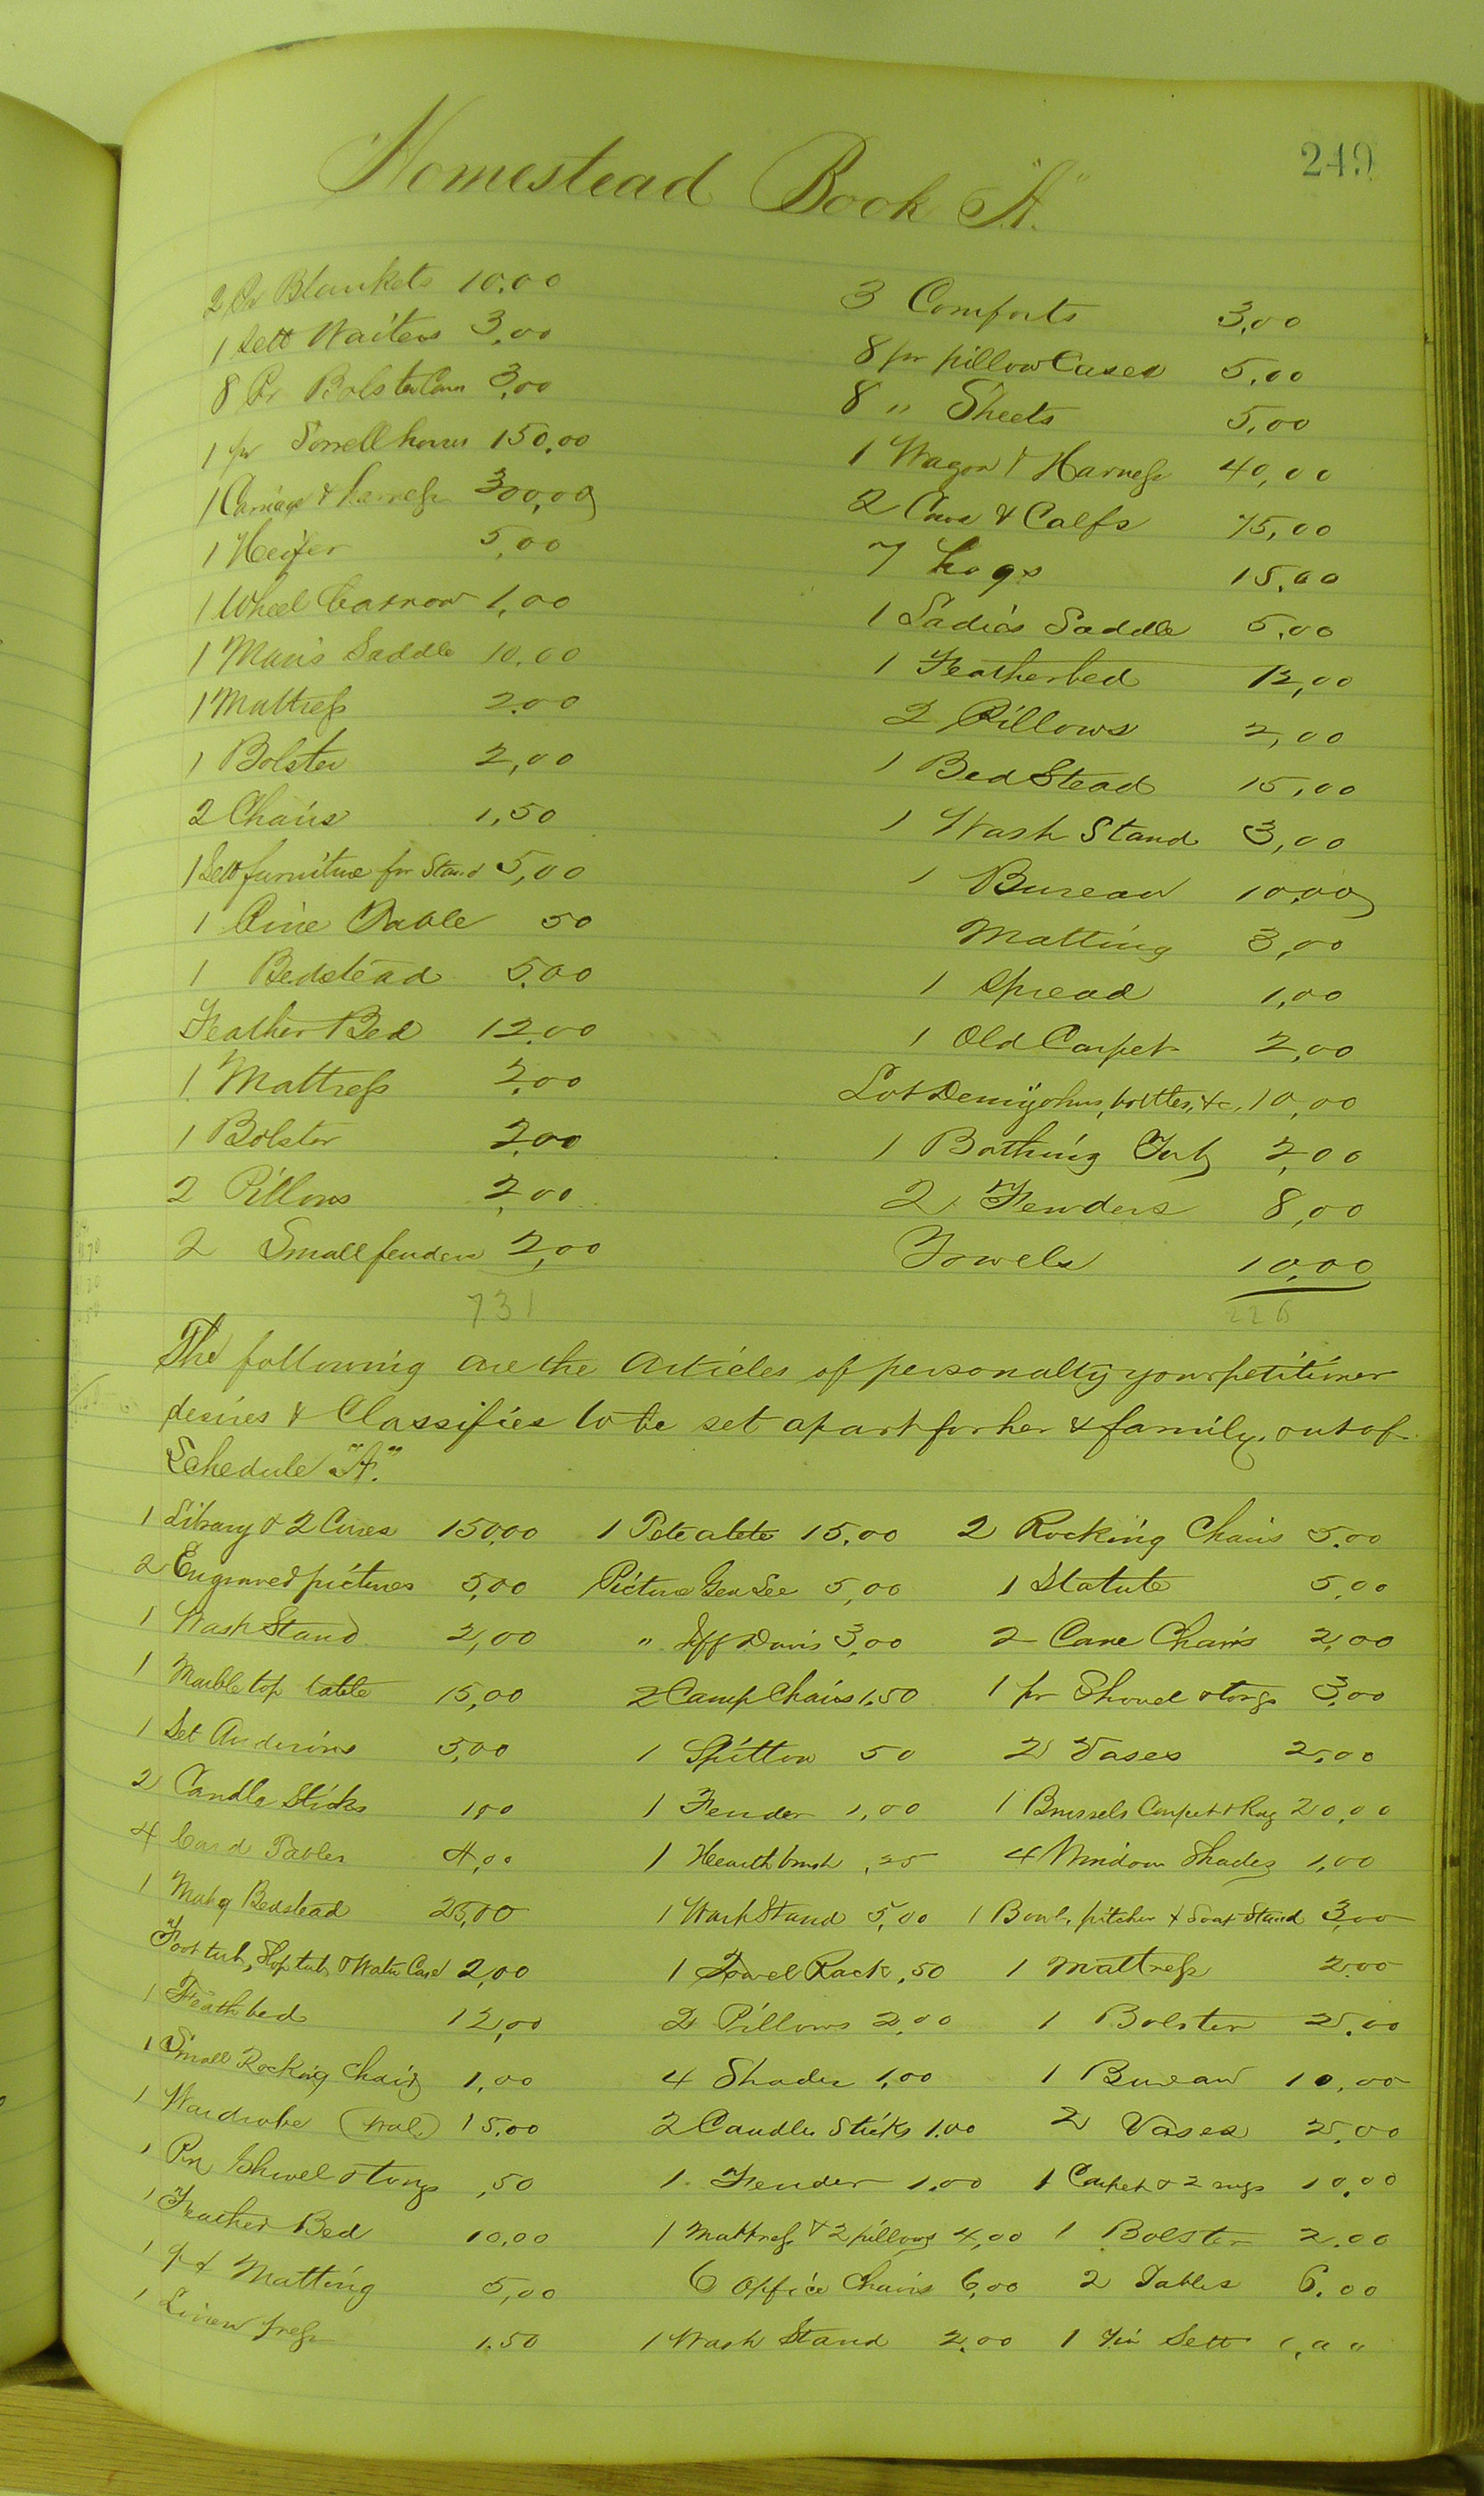 249
Homestead Book "A."
2 Pr Blankets 10.00 3 Comforts 3,00
1 Sett Waiters 3,00 8 pr pillow Cases 5,00
8 Pr Bolster Cases 3,00 8 " Sheets 5,00
1 pr Sorrell horses 150.00 1 Wagon & Harness 40,00
1 Carriage & harness 300,00 2 Cows & Calfs 75,00
1 Heifer 5,00 7 hogs 15,00
1 Wheel barrow 1,00 1 Ladies Saddle 5,00
1 Man's Saddle 10,00 1 Featherbed 12,00
1 Mattress 2.00 2 Pillows 2,00
1 Bolster 2,00 1 Bed Stead 15,00
2 Chairs 1,50 1 Wash Stand 3,00
1 Sett furniture for Stand 5,00 1 Bureau 10,00
1 Pine Table 50 Matting 3,00
1 Bedstead 5.00 1 Spread 1,00
Feather Bed 12.00 1 Old Carpet 2,00
1 Mattress 2,00 Lot Demijohns, bottles, &c, 10,00
1 Bolster 2,00 1 Bathing Tub 2,00
2 Pillows 2,00 2 Fenders 8,00
2 Small fenders 2,00 Towels 10,00
731
The following are the articles of personalty your petitioner
desires & Classifies to be set apart for her & family, out of
Schedule "A."
1 Library & 2 Cases 150.00 1 Tete a tete 15,00 2 Rocking Chairs 5.00
2 Engraved pictures 5,00 Picture Gen Lee 5,00 1 Statute 5,00
1 Wash Stand 2,00 " Jeff Davis 3,00 2 Cane Chairs 2,00
1 Marble top table 15,00 2 Camp Chairs 1.50 1 pr Shovel & tongs 3,00
1 Set Andirons 5,00 1 Spittoon 50 2 Vases 2,00
2 Candle Sticks 1,00 1 Fender 1,00 1 Brussels Carpet & Rug 20,00
4 Card Tables 4,00 1 Hearth brush ,25 4 Window Shades 1,00
1 Mahg Bedstead 25,00 1 Wash Stand 5,00 1 Bowl, pitcher & Soap Stand 3,00
Foot tub, Slop tub & Water Can 2,00 1 Towel Rack ,50 1 Mattress 2.00
1 Feath bed 12,00 2 Pillows 2,00 1 Bolster 2,00
1 Small Rocking Chair 1,00 4 Shades 1,00 1 Bureau 10,00
1 Wardrobe (Wal.) 15.00 2 Candle Sticks 1.00 2 Vases 2,00
1 Pr Shovel & tongs ,50 1 Fender 1,00 1 Carpet & 2 rugs 10,00
1 Feather Bed 10,00 1 Mattress & 2 pillows 4,00 1 Bolster 2.00
1 Matting 5,00 6 Office Chairs 6,00 2 Tables 6.00
1 Linen press 1.50 1 Wash Stand 2.00 1 Tin Sett